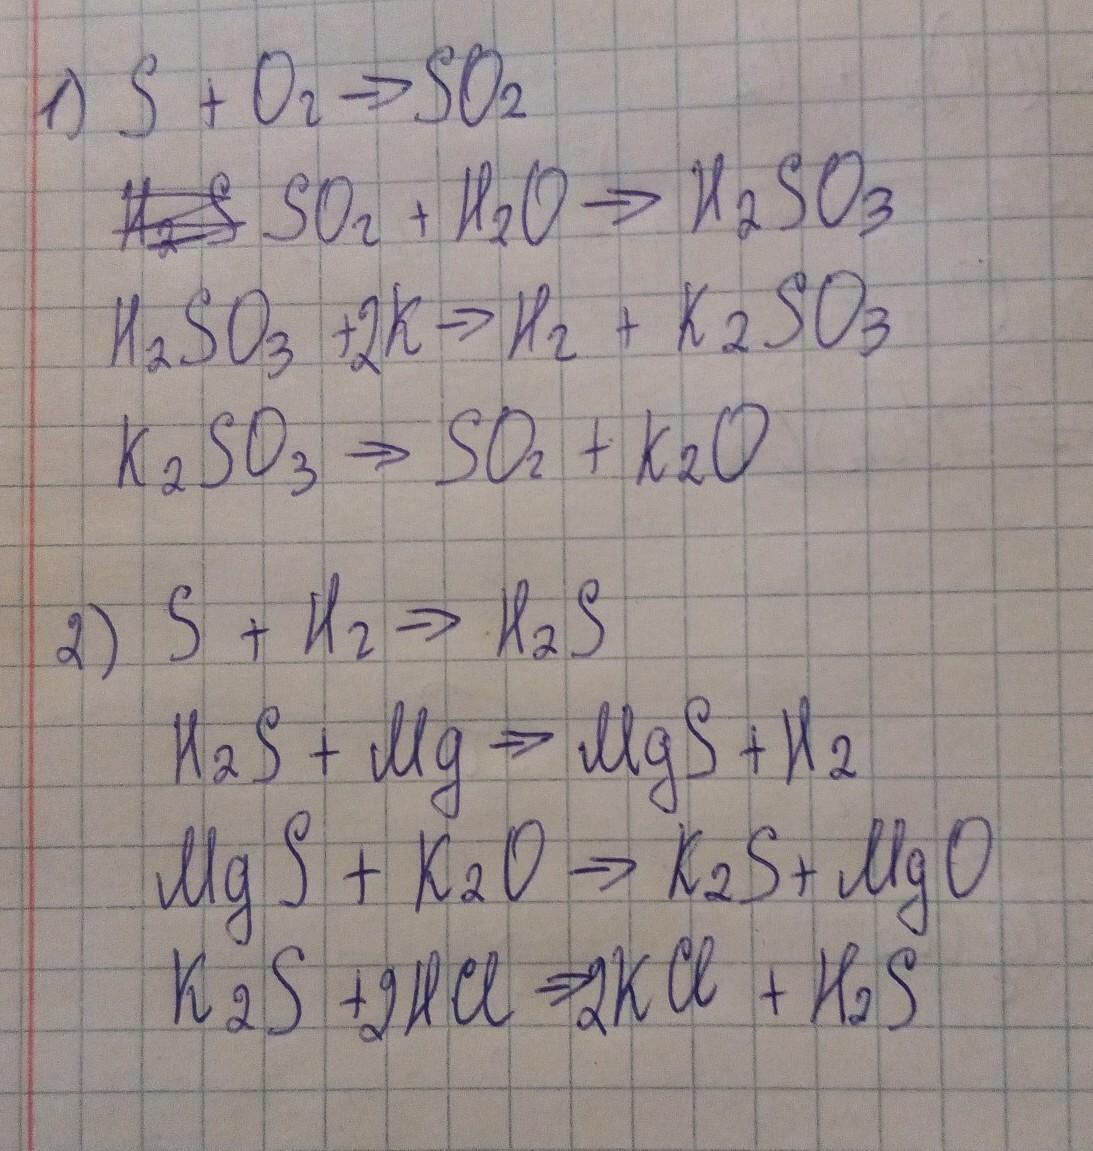 1) S + O₂ ⇒ SO₂
H₂S SO₂ + H₂O ⇒ H₂SO₃
H₂SO₃ +2K ⇒ H₂ + K₂SO₃
K₂SO₃ ⇒ SO₂ + K₂O
2) S + H₂ ⇒ H₂S
H₂S + Mg ⇒ MgS + H₂
MgS + K₂O ⇒ K₂S + MgO
K₂S +2HCl ⇒ 2KCl + H₂S